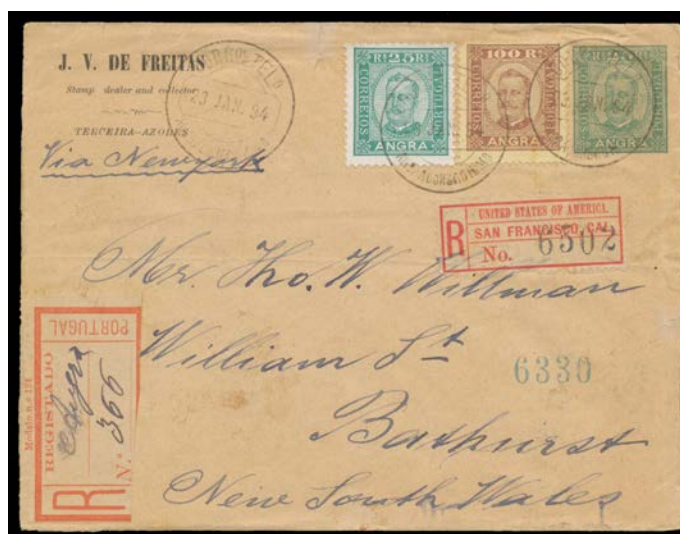 J. V. DE FREITAS
Stamp dealer and collector
TERCEIRA-AZORES
Via Newyork
23 JAN. 94
CORREIOS
25 RS
ANGRA
CORREIOS
100 RS
ANGRA
ANGRA
UNITED STATES OF AMERICA.
SAN FRANCISCO, CAL.
R No. 6502
Mr. Tho. W. Willman
William St
6330
Bathurst
New South Wales
PORTUGAL
REGISTADO
Angra
R N.º 366